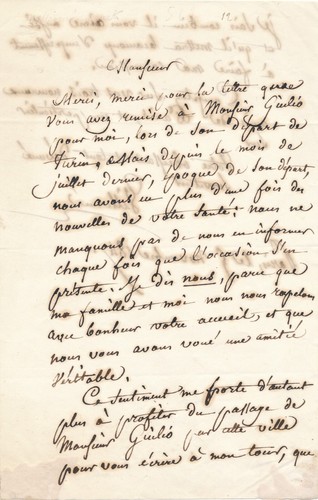 12
Monsieur
Merci, merci pour la lettre que
vous avez remise à Monsieur Giulio
pour moi, lors de son départ de
Turin. Mais depuis le mois de
juillet dernier, époque de son départ,
nous avons eu plus d'une fois des
nouvelles de votre santé: nous ne
manquons pas de nous en informer
chaque fois que l'occasion s'en
présente. Je dis nous, parce que
ma famille et moi nous nous rapelons
avec bonheur votre accueil, et que
nous vous avons voué une amitié
véritable.
Ce sentiment me porte d'autant
plus à profiter du passage de
Monsieur Giulio par cette ville
pour vous écrire à mon tour, que